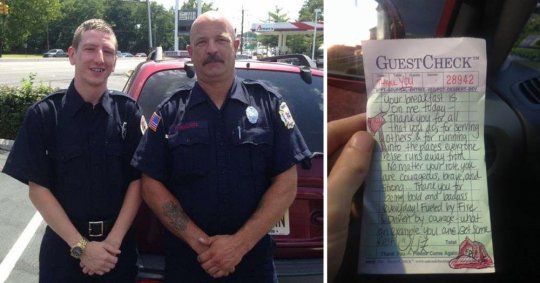 GUESTCHECK™
Thank You 28942
Your breakfast is
on me today -
Thank you for all
that you do; for serving
others & for running
into the places everyone
else runs away from.
No matter your role, you
are courageous, brave, and
strong. Thank you for
being bold and badass
everyday! Fueled by fire
driven by courage - what
an example you are. Get some
rest
Total
Thank You - Please Come Again